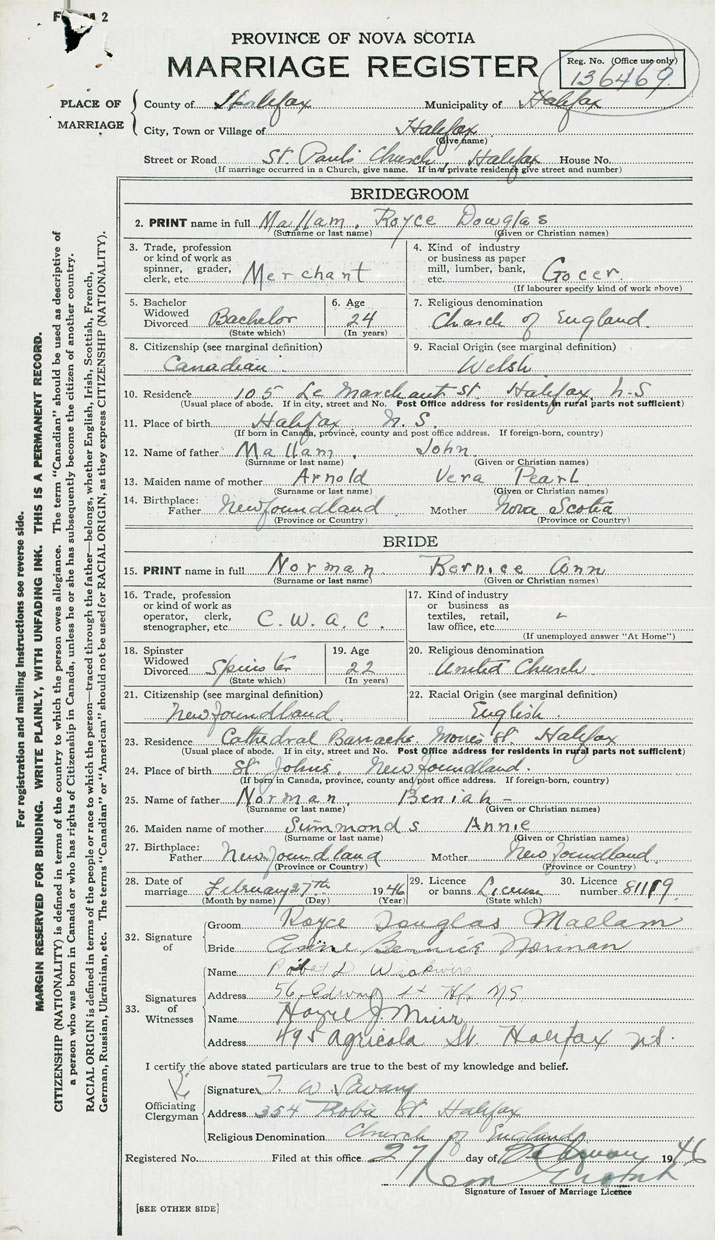 FORM 2
PROVINCE OF NOVA SCOTIA
MARRIAGE REGISTER
Reg. No. (Office use only)
136469
PLACE OF MARRIAGE
County of Halifax Municipality of Halifax
City, Town or Village of Halifax
(Give name)
Street or Road St. Paul's Church, Halifax House No.
(If marriage occurred in a Church, give name. If in a private residence give street and number)
BRIDEGROOM
2. PRINT name in full Mallam, Royce Douglas
(Surname or last name) (Given or Christian names)
3. Trade, profession or kind of work as spinner, grader, clerk, etc. Merchant
4. Kind of industry or business as paper mill, lumber, bank, etc. Gocer
(If labourer specify kind of work above)
5. Bachelor Widowed Divorced Bachelor (State which)
6. Age 24 (In years)
7. Religious denomination Church of England
8. Citizenship (see marginal definition) Canadian
9. Racial Origin (see marginal definition) Welsh
10. Residence 105 Le Marchant St. Halifax N.S
(Usual place of abode. If in city, street and No. Post Office address for residents in rural parts not sufficient)
11. Place of birth Halifax N.S.
(If born in Canada, province, county and post office address. If foreign-born, country)
12. Name of father Mallam, John
(Surname or last name) (Given or Christian names)
13. Maiden name of mother Arnold Vera Pearl
(Surname or last name) (Given or Christian names)
14. Birthplace: Father Newfoundland Mother Nova Scotia
(Province or Country) (Province or Country)
BRIDE
15. PRINT name in full Norman Bernice Ann
(Surname or last name) (Given or Christian names)
16. Trade, profession or kind of work as operator, clerk, stenographer, etc. C.W.A.C.
17. Kind of industry or business as textiles, retail, law office, etc.
(If unemployed answer "At Home")
18. Spinster Widowed Divorced Spinster (State which)
19. Age 22 (In years)
20. Religious denomination United Church
21. Citizenship (see marginal definition) Newfoundland
22. Racial Origin (see marginal definition) English
23. Residence Cathedral Barracks St Halifax
(Usual place of abode. If in city, street and No. Post Office address for residents in rural parts not sufficient)
24. Place of birth St. Johns, Newfoundland.
(If born in Canada, province, county and post office address. If foreign-born, country)
25. Name of father Norman, Beniah -
(Surname or last name) (Given or Christian names)
26. Maiden name of mother Summonds Annie
(Surname or last name) (Given or Christian names)
27. Birthplace: Father Newfoundland Mother Newfoundland
(Province or Country) (Province or Country)
28. Date of marriage February 27th 1946
(Month by name) (Day) (Year)
29. Licence or banns License (State which)
30. Licence number 81119
32. Signature of
Groom Royce Douglas Mallam
Bride Anne Bernice Norman
33. Signatures of Witnesses
Name Robert D
Address 56 Edward St Hfx NS
Name J. Muir
Address 495 Agricola St. Halifax N.S.
I certify the above stated particulars are true to the best of my knowledge and belief.
Officiating Clergyman
Signature T. W. Savary
Address 354 Robie St. Halifax
Religious Denomination Church of England
Registered No. Filed at this office 27 day of February 1946
Signature of Issuer of Marriage Licence
[SEE OTHER SIDE]
For registration and mailing instructions see reverse side.
MARGIN RESERVED FOR BINDING. WRITE PLAINLY, WITH UNFADING INK. THIS IS A PERMANENT RECORD.
CITIZENSHIP (NATIONALITY) is defined in terms of the country to which the person owes allegiance. The term "Canadian" should be used as descriptive of
a person who was born in Canada or who has rights of Citizenship in Canada, unless he or she has subsequently become the citizen of another country.
RACIAL ORIGIN is defined in terms of the people or race to which the person—traced through the father—belongs, whether English, Irish, Scottish, French,
German, Russian, Ukrainian, etc. The terms "Canadian" or "American" should not be used for RACIAL ORIGIN, as they express CITIZENSHIP (NATIONALITY).